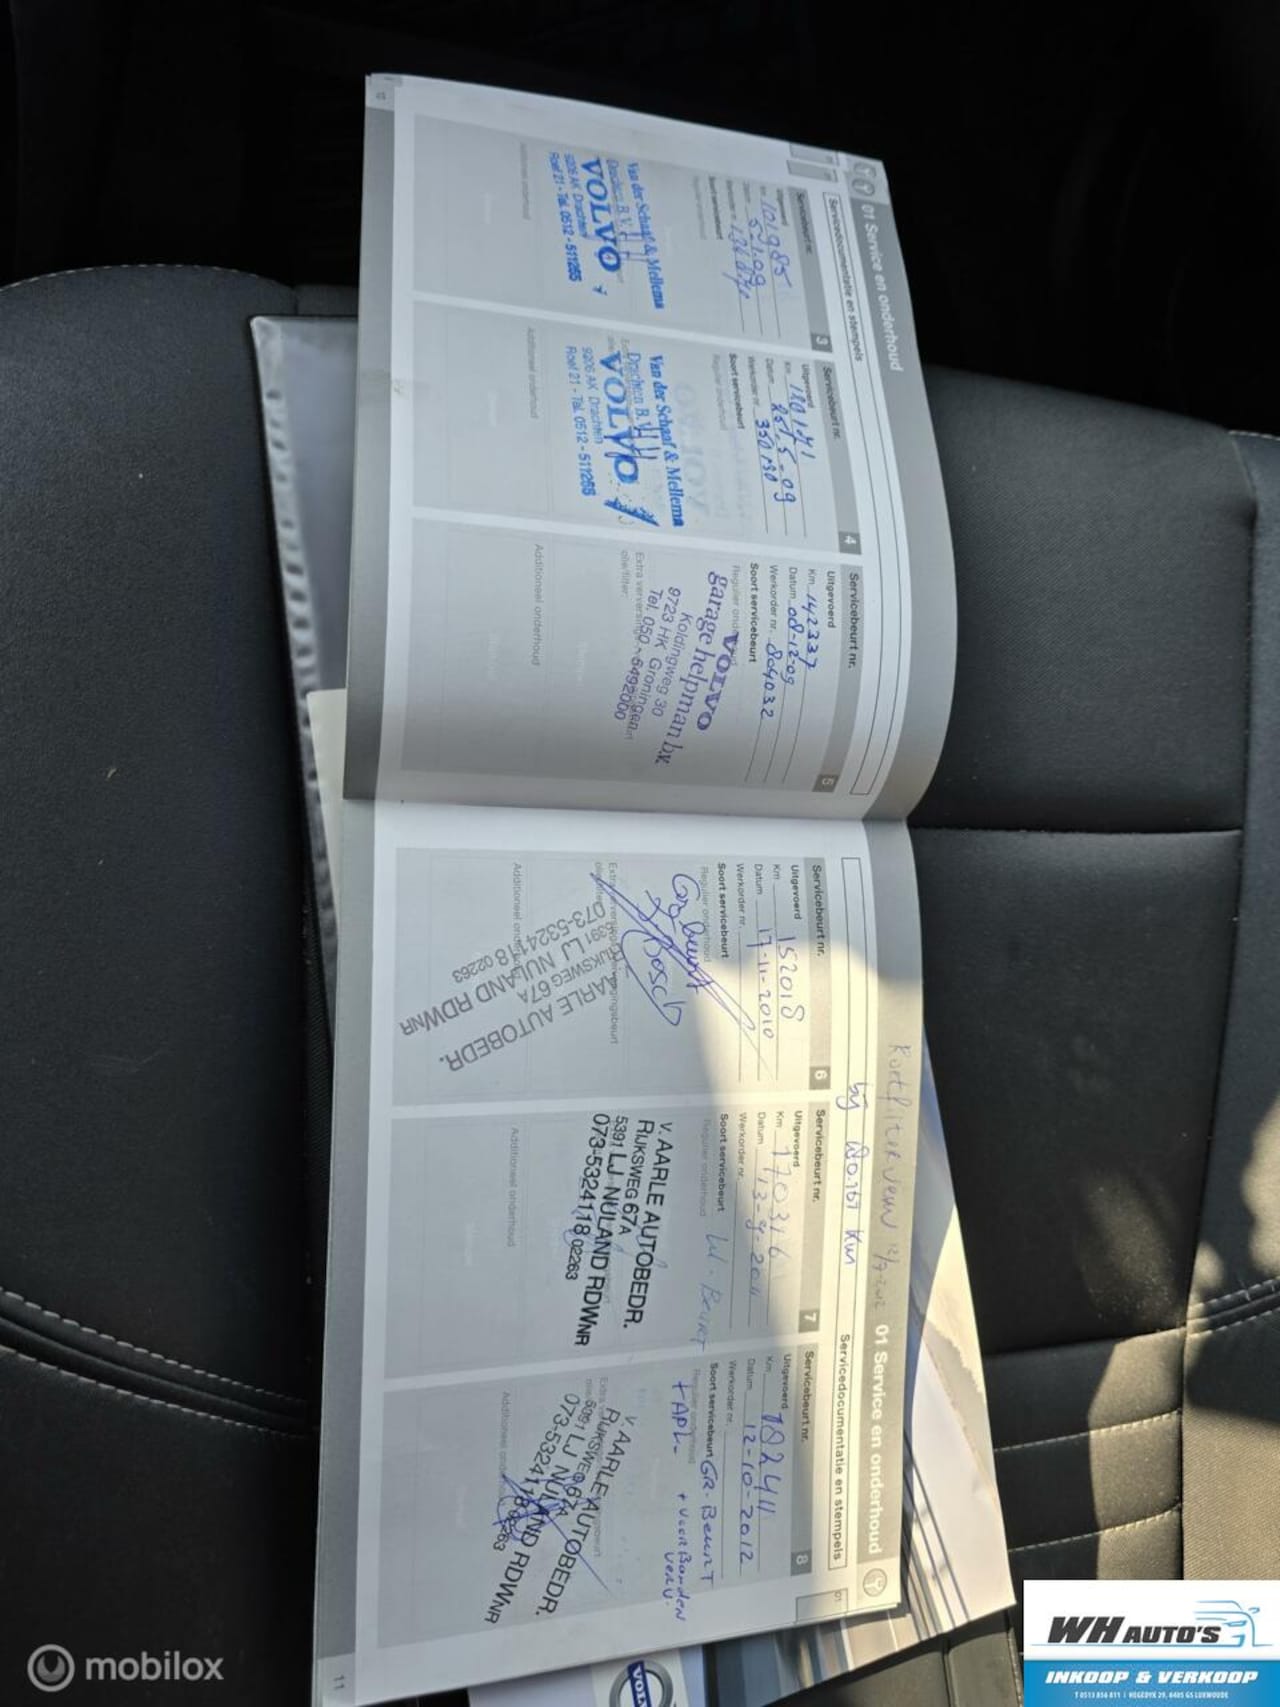 01 Service en onderhoud
Servicedocumentatie en stempels
Servicebeurt nr. 3
Uitgevoerd
Km 101985
Datum
Werkorder nr.
Soort servicebeurt
Regulier onderhoud
Van der Schaaf & Mellema
Drachten B.V.
VOLVO
9206 AK Drachten
Roef 21 - Tel. 0512 - 511265
Additioneel onderhoud
Servicebeurt nr. 4
Uitgevoerd
Km 120171
Datum 25-5-09
Werkorder nr. 350130
Soort servicebeurt
Regulier onderhoud
Van der Schaaf & Mellema
Drachten B.V.
VOLVO
9206 AK Drachten
Roef 21 - Tel. 0512 - 511265
Additioneel onderhoud
Servicebeurt nr. 5
Uitgevoerd
Km 142337
Datum 08-12-09
Werkorder nr. 804032
Soort servicebeurt
Regulier onderhoud
VOLVO
garage helpman b.v.
Koldingweg 30
9723 HK Groningen
Tel. 050 - 5492000
Extra verversingsbeurt
olie/filter:
Additioneel onderhoud
12/7-2012
bij km
01 Service en onderhoud
Servicedocumentatie en stempels
Servicebeurt nr. 6
Uitgevoerd
Km 152018
Datum 17-11-2010
Werkorder nr.
Soort servicebeurt
Regulier onderhoud
Gr. beurt
Bosch
AARLE AUTOBEDR.
RIJKSWEG 67A
5391 LJ NULAND RDWNR
073-5324118 02263
Additioneel onderhoud
Servicebeurt nr. 7
Uitgevoerd
Km 170316
Datum 13-9-2011
Werkorder nr.
Soort servicebeurt
Regulier onderhoud
Beurt
v. AARLE AUTOBEDR.
RIJKSWEG 67A
5391 LJ NULAND RDWNR
073-5324118 02263
Additioneel onderhoud
Servicebeurt nr. 8
Uitgevoerd
Km 182411
Datum 12-10-2012
Werkorder nr.
Soort servicebeurt GR. Beurt
Regulier onderhoud
+ APK + voor Banden
v. AARLE AUTOBEDR.
RIJKSWEG 67A
5391 LJ NULAND RDWNR
073-5324118 02263
Additioneel onderhoud
11
VOLVO
mobilox
WH AUTO'S
INKOOP & VERKOOP
T 0513 856 811 | HEGEDYK 29, 8405 GS LUXWOUDE